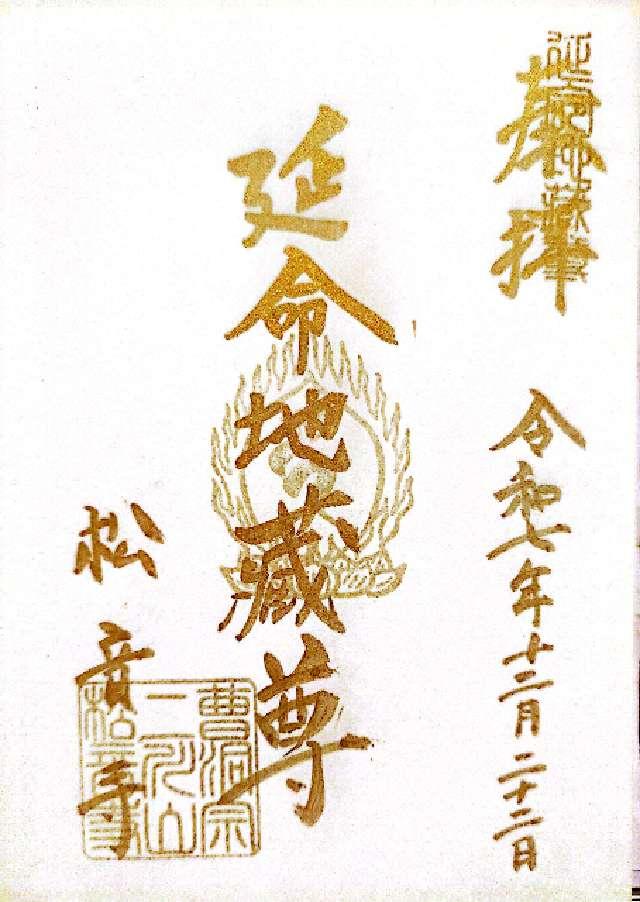 奉拝
延命地蔵尊
令和七年十二月二十二日
延命地蔵尊
松音寺
曹洞宗